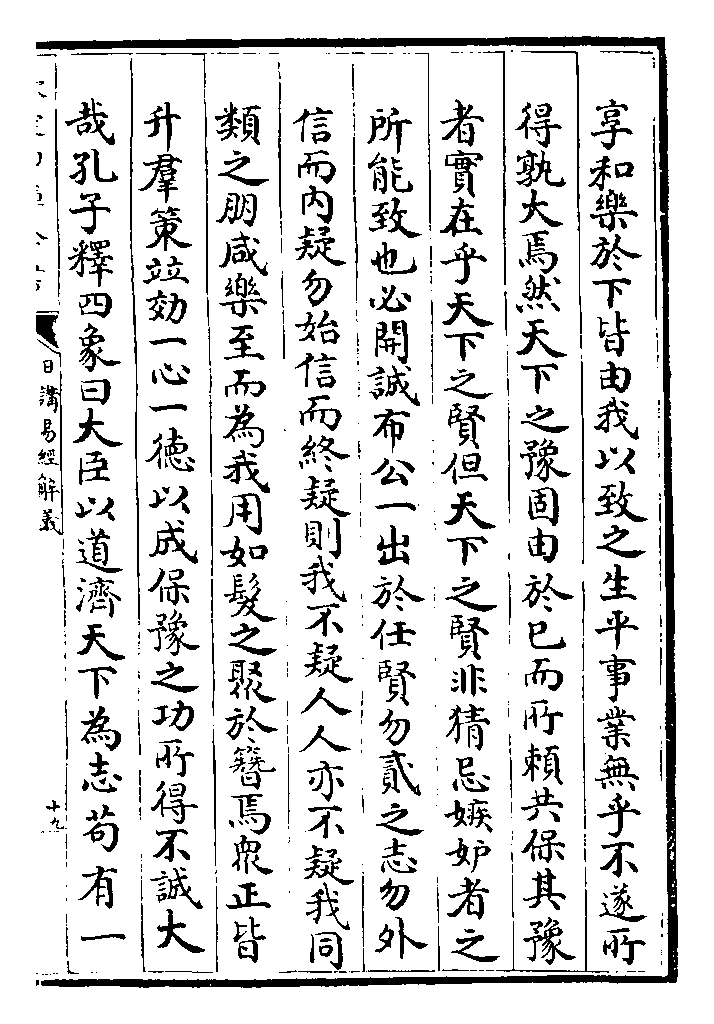 享和樂於下皆由我以致之生平事業無乎不遂所
得孰大焉然天下之豫固由於已而所賴共保其豫
者實在乎天下之賢但天下之賢非猜忌嫉妒者之
所能致也必開誠布公一出於任賢勿貳之志勿外
信而内疑勿始信而終疑則我不疑人人亦不疑我同
類之朋咸樂至而為我用如髮之聚於簪焉衆正皆
升羣策竝効一心一德以成保豫之功所得不誠大
哉孔子釋四象曰大臣以道濟天下為志苟有一
日講易經解義
十九